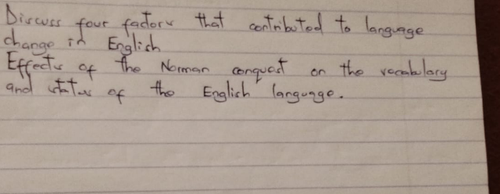 Discuss four factors that contributed to language
change in English
Effects of the Norman conquest on the vocabulary
and status of the English language.